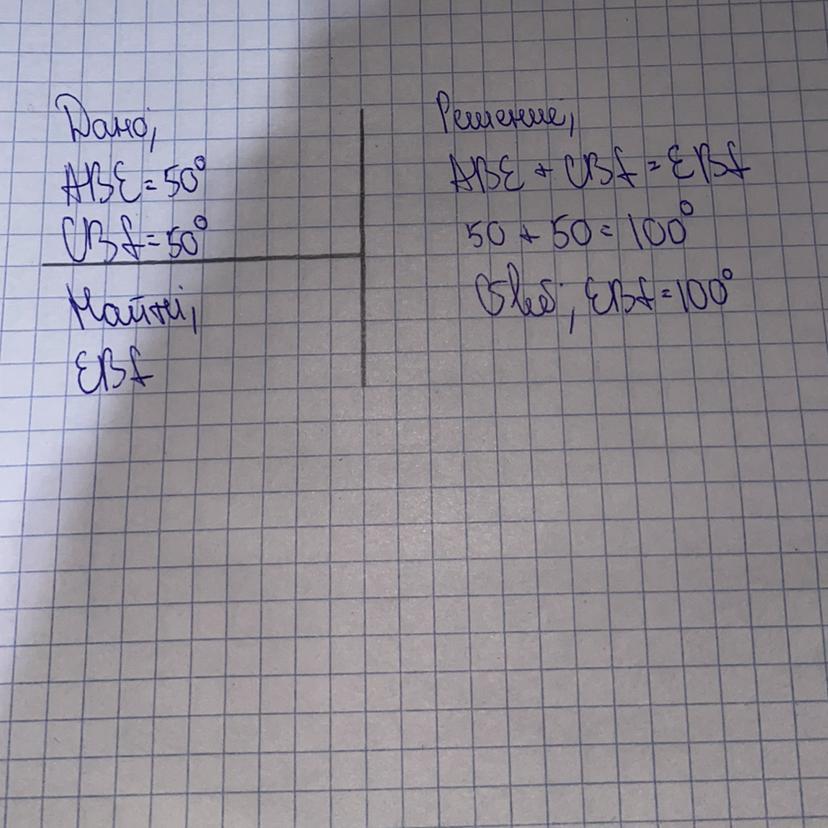 Дано;
ABE = 50°
CBf = 50°
Найти;
EBf
Решение;
ABE + CBf = EBf
50 + 50 = 100°
Ответ; EBf = 100°